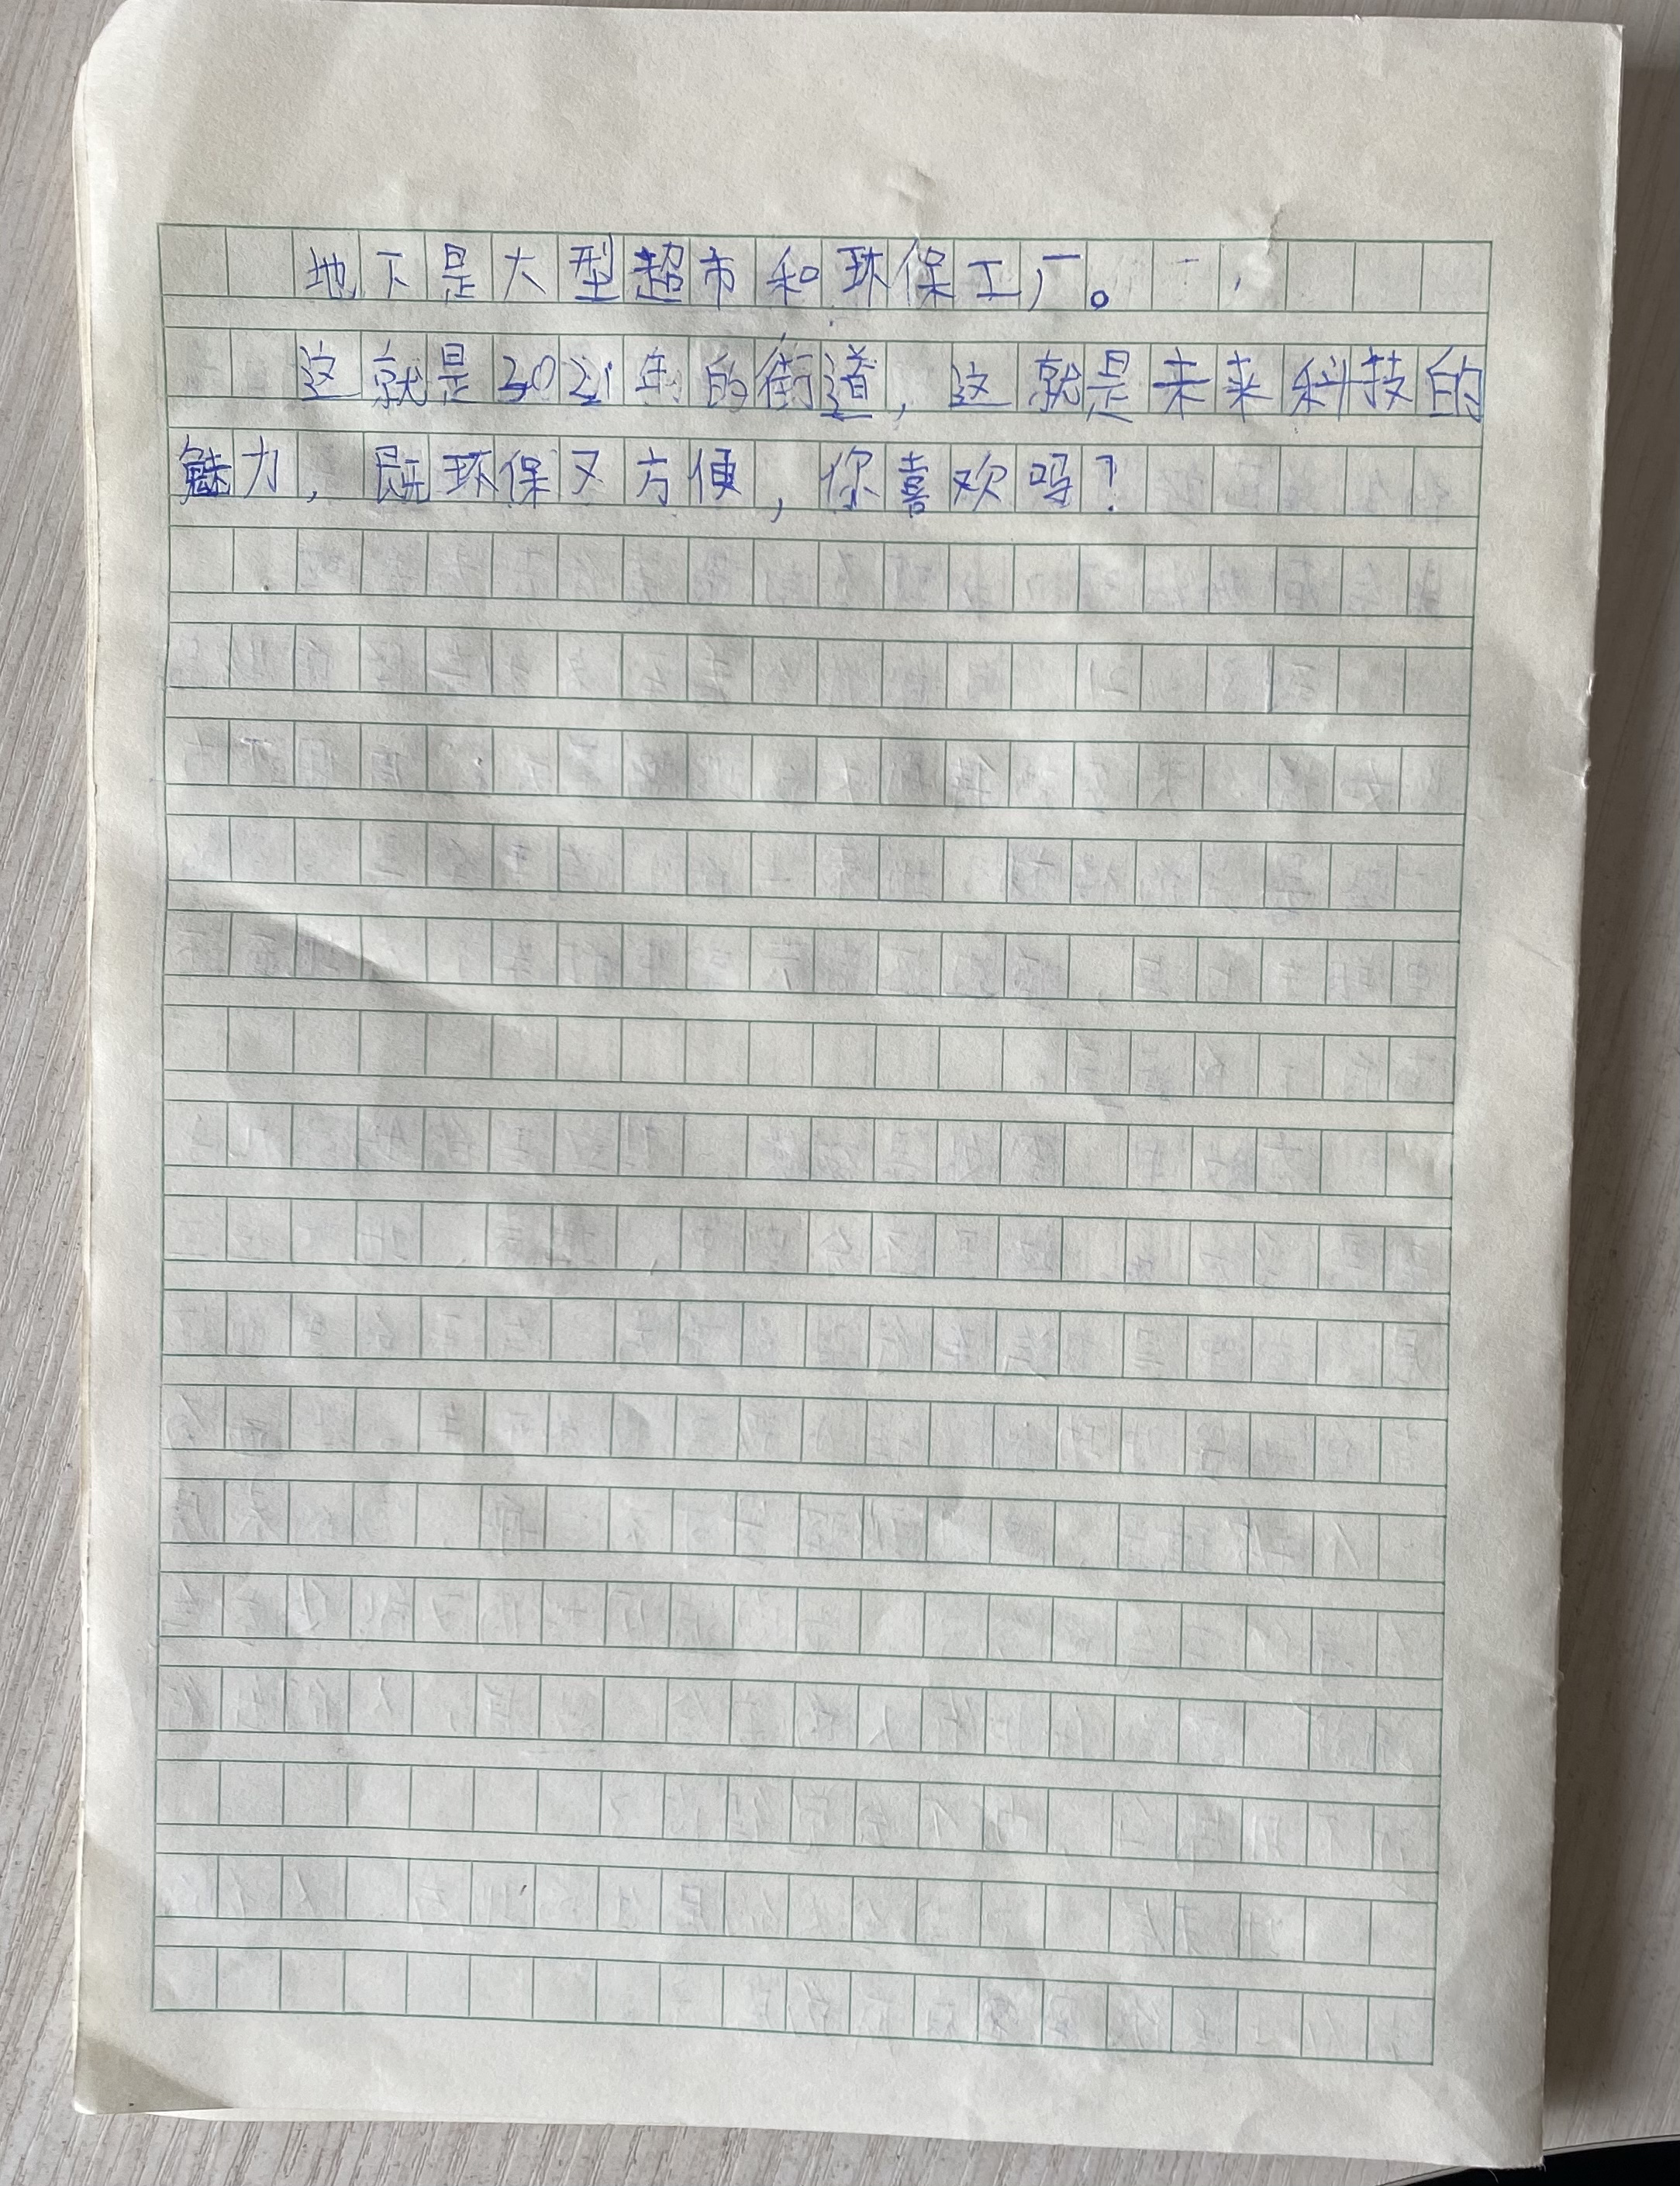 地下是大型超市和环保工厂。
这就是3021年的街道,这就是未来科技的
魅力,既环保又方便,你喜欢吗?